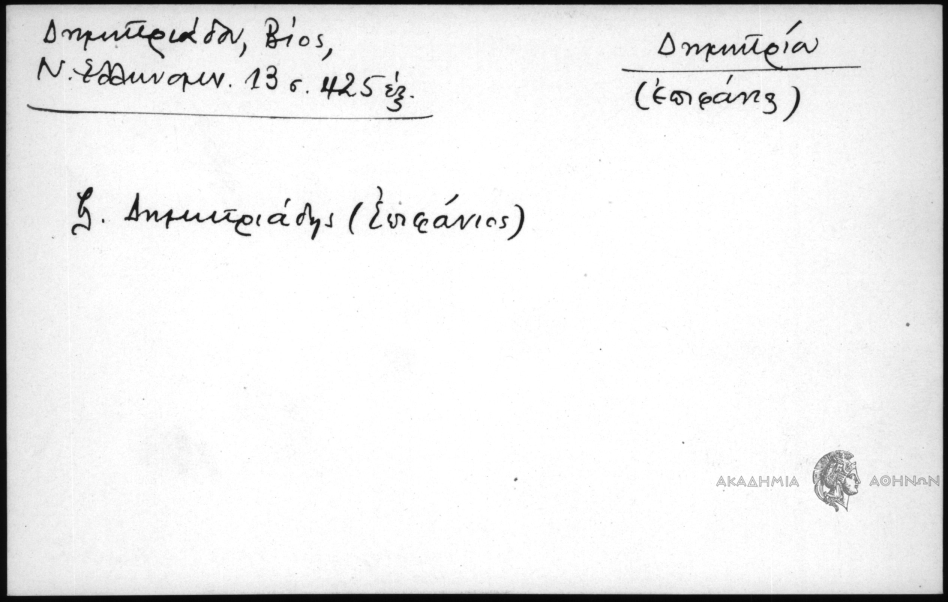 Δημητριάδου, Βίος,
Ν. Ἑλληνομν. 13 σ. 425 ἑξ.
Δημητρίου
(Ἐπιφάνης)
ζ. Δημητριάδης (Ἐπιφάνιος)
ΑΚΑΔΗΜΙΑ ΑΘΗΝΩΝ